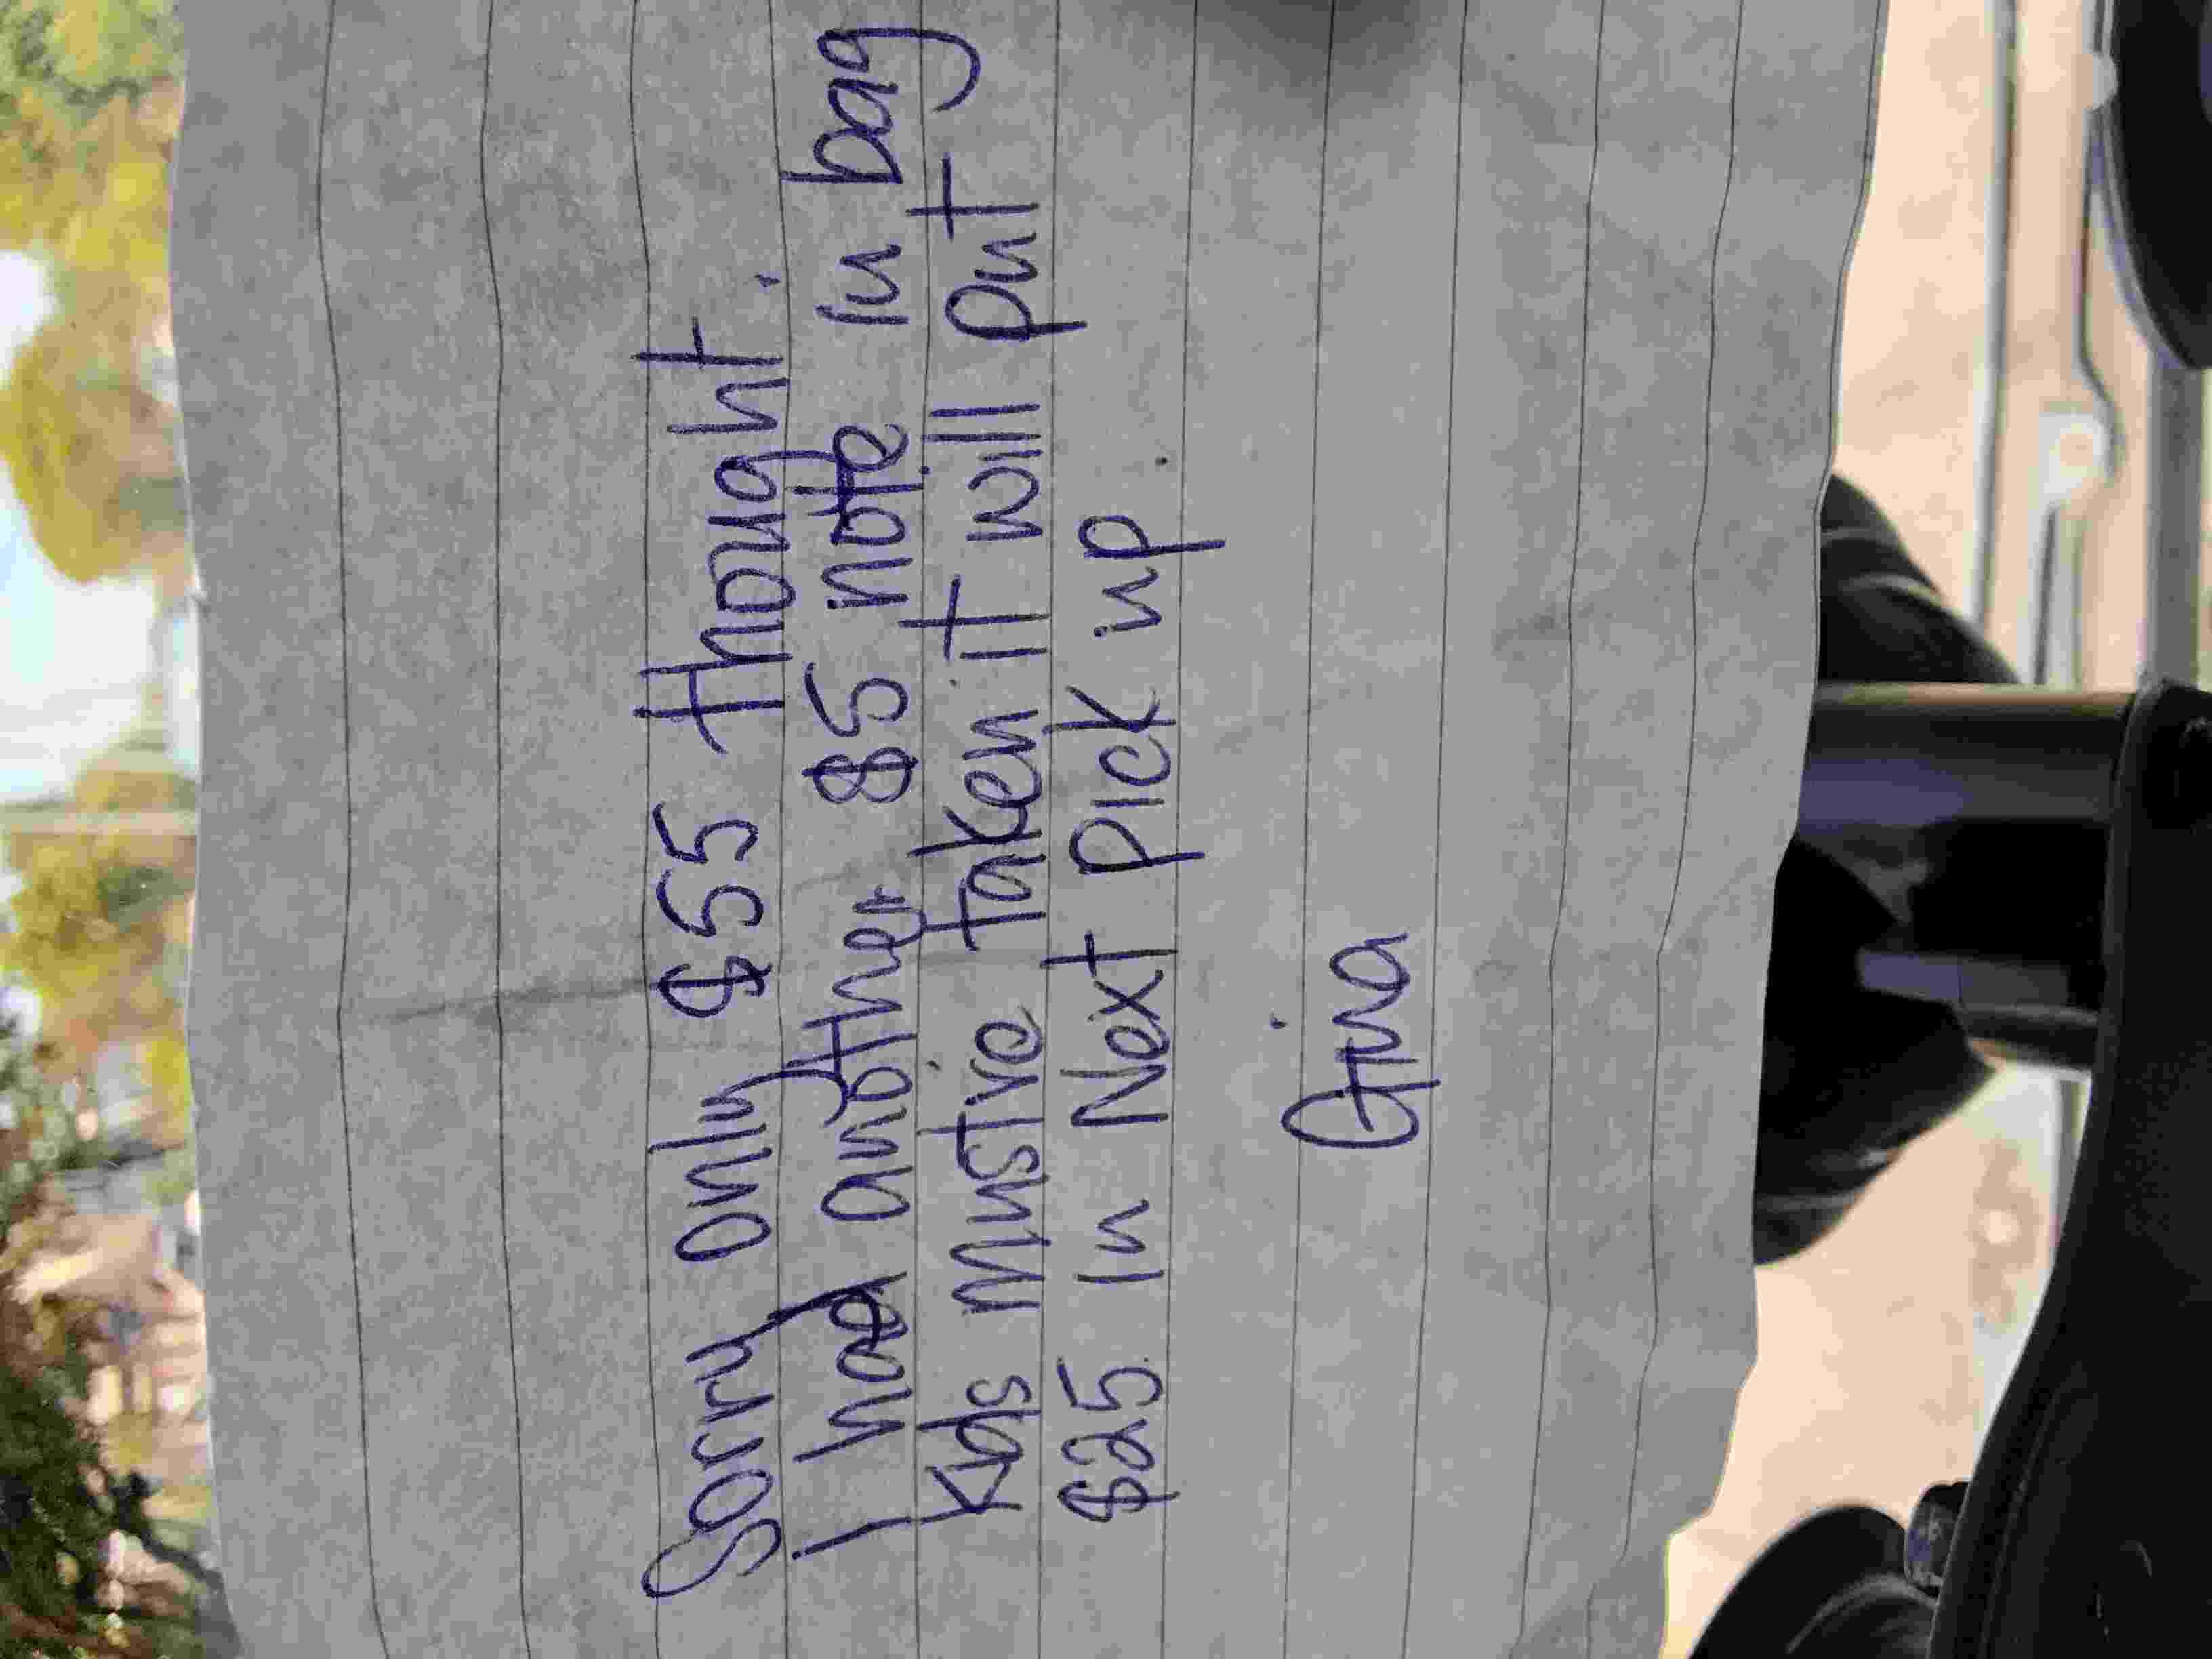 Sorry only $55 thought.
I had another $5 note in bag
Kids must've taken it will put
$25 in Next Pick up.
Gina